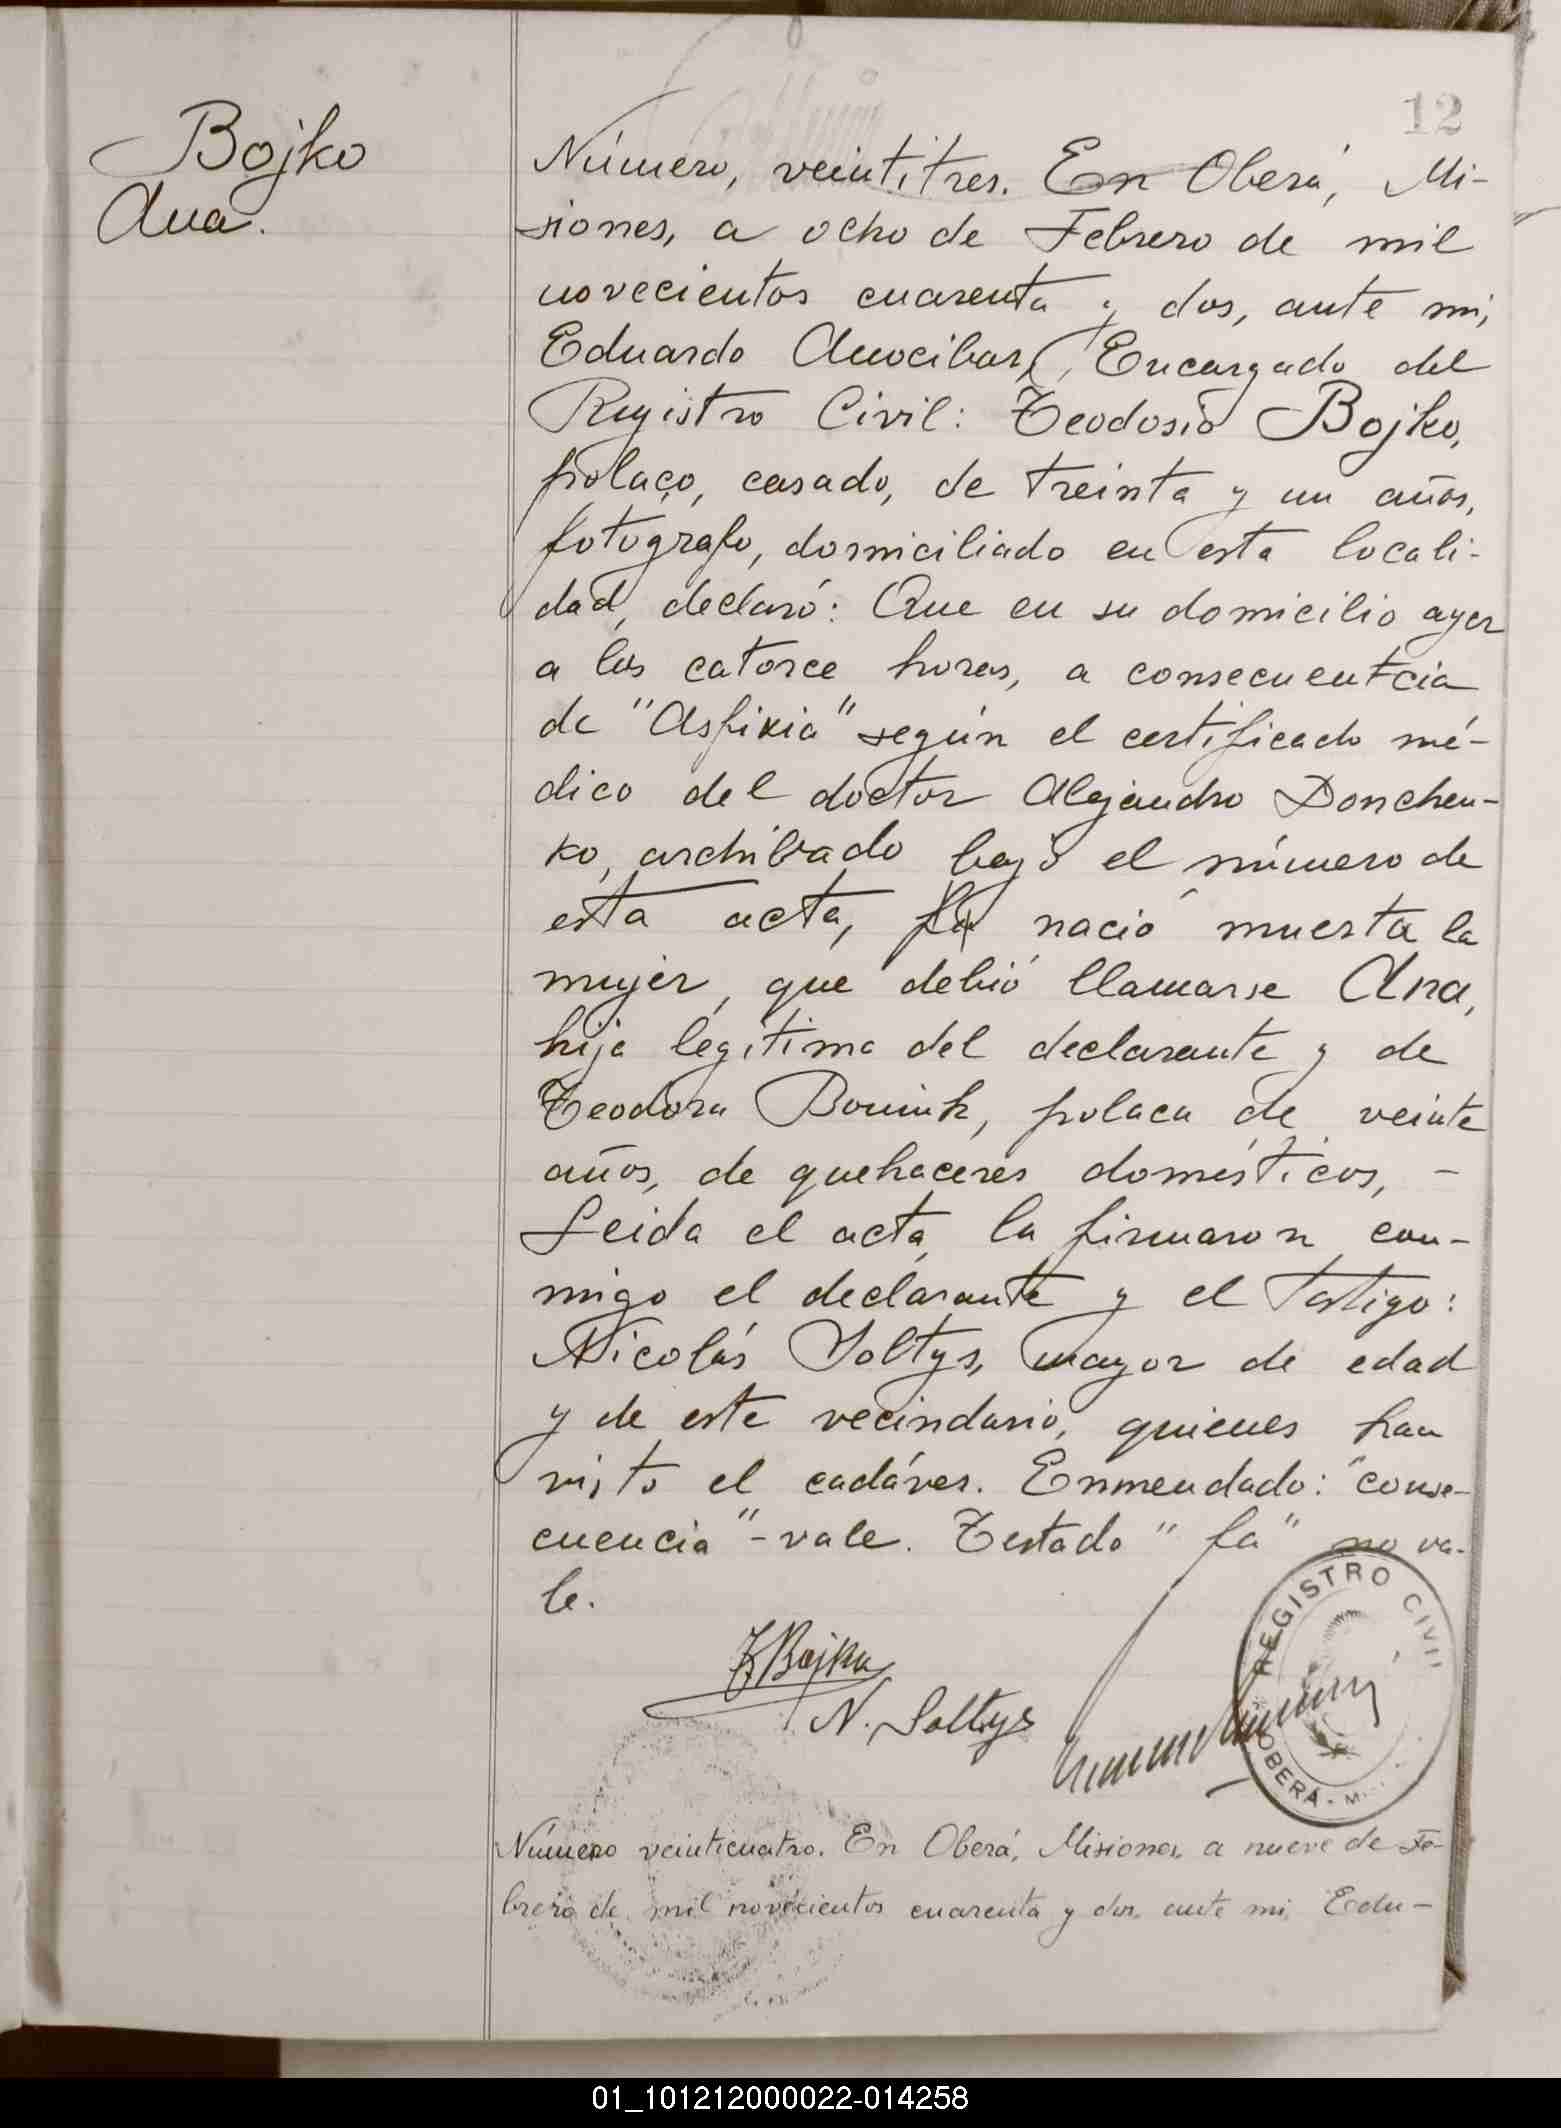 12
Bojko
Ana.
Número, veintitres. En Oberá, Mi-
siones, a ocho de Febrero de mil
novecientos cuarenta y dos, ante mi,
Eduardo Anocibar, Encargado del
Registro Civil: Teodosio Bojko,
polaco, casado, de treinta y un años,
fotografo, domiciliado en esta locali-
dad, declaró: Que en su domicilio ayer
a las catorce horas, a consecuentcia
de "Asfixia" según el certificado mé-
dico del doctor Alejandro Donchen-
ko, archivado bajo el número de
esta acta, fa nació muerta la
mujer, que debió llamarse Ana,
hija legítima del declarante y de
Teodora polaca de veinte
años, de quehaceres domésticos, -
Leida el acta, la firmaron con-
migo el declarante y el testigo:
Nicolás Soltys, mayor de edad
y de este vecindario, quienes han
visto el cadáver. Enmendado: "conse-
cuencia" - vale. Testado "fa" no va-
le.
T Bojko
N. Soltys
REGISTRO CIVIL
OBERÁ - M
Número veinticuatro. En Oberá, Misiones, a nueve de Fe-
brero de mil novecientos cuarenta y dos, ante mi, Edu-
01_101212000022-014258